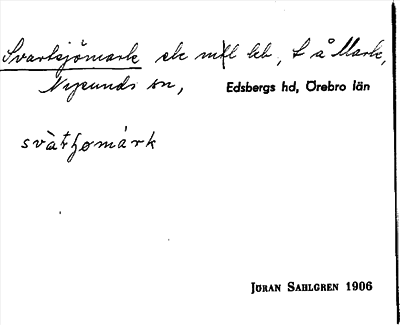 Svartsjömark ek mfl heb, t å Mark,
Nysunds sn, Edsbergs hd, Örebro län
svàtʃømárk
JÖRAN SAHLGREN 1906